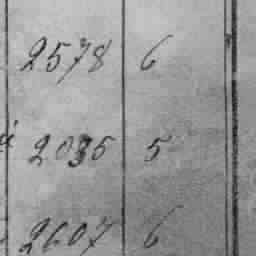 2578 6
2035 5
2607 6